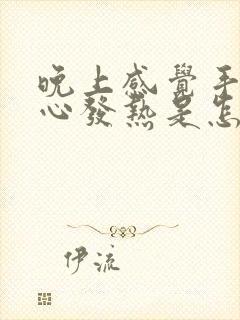 晚上感覺手
心發熱是怎
伊流